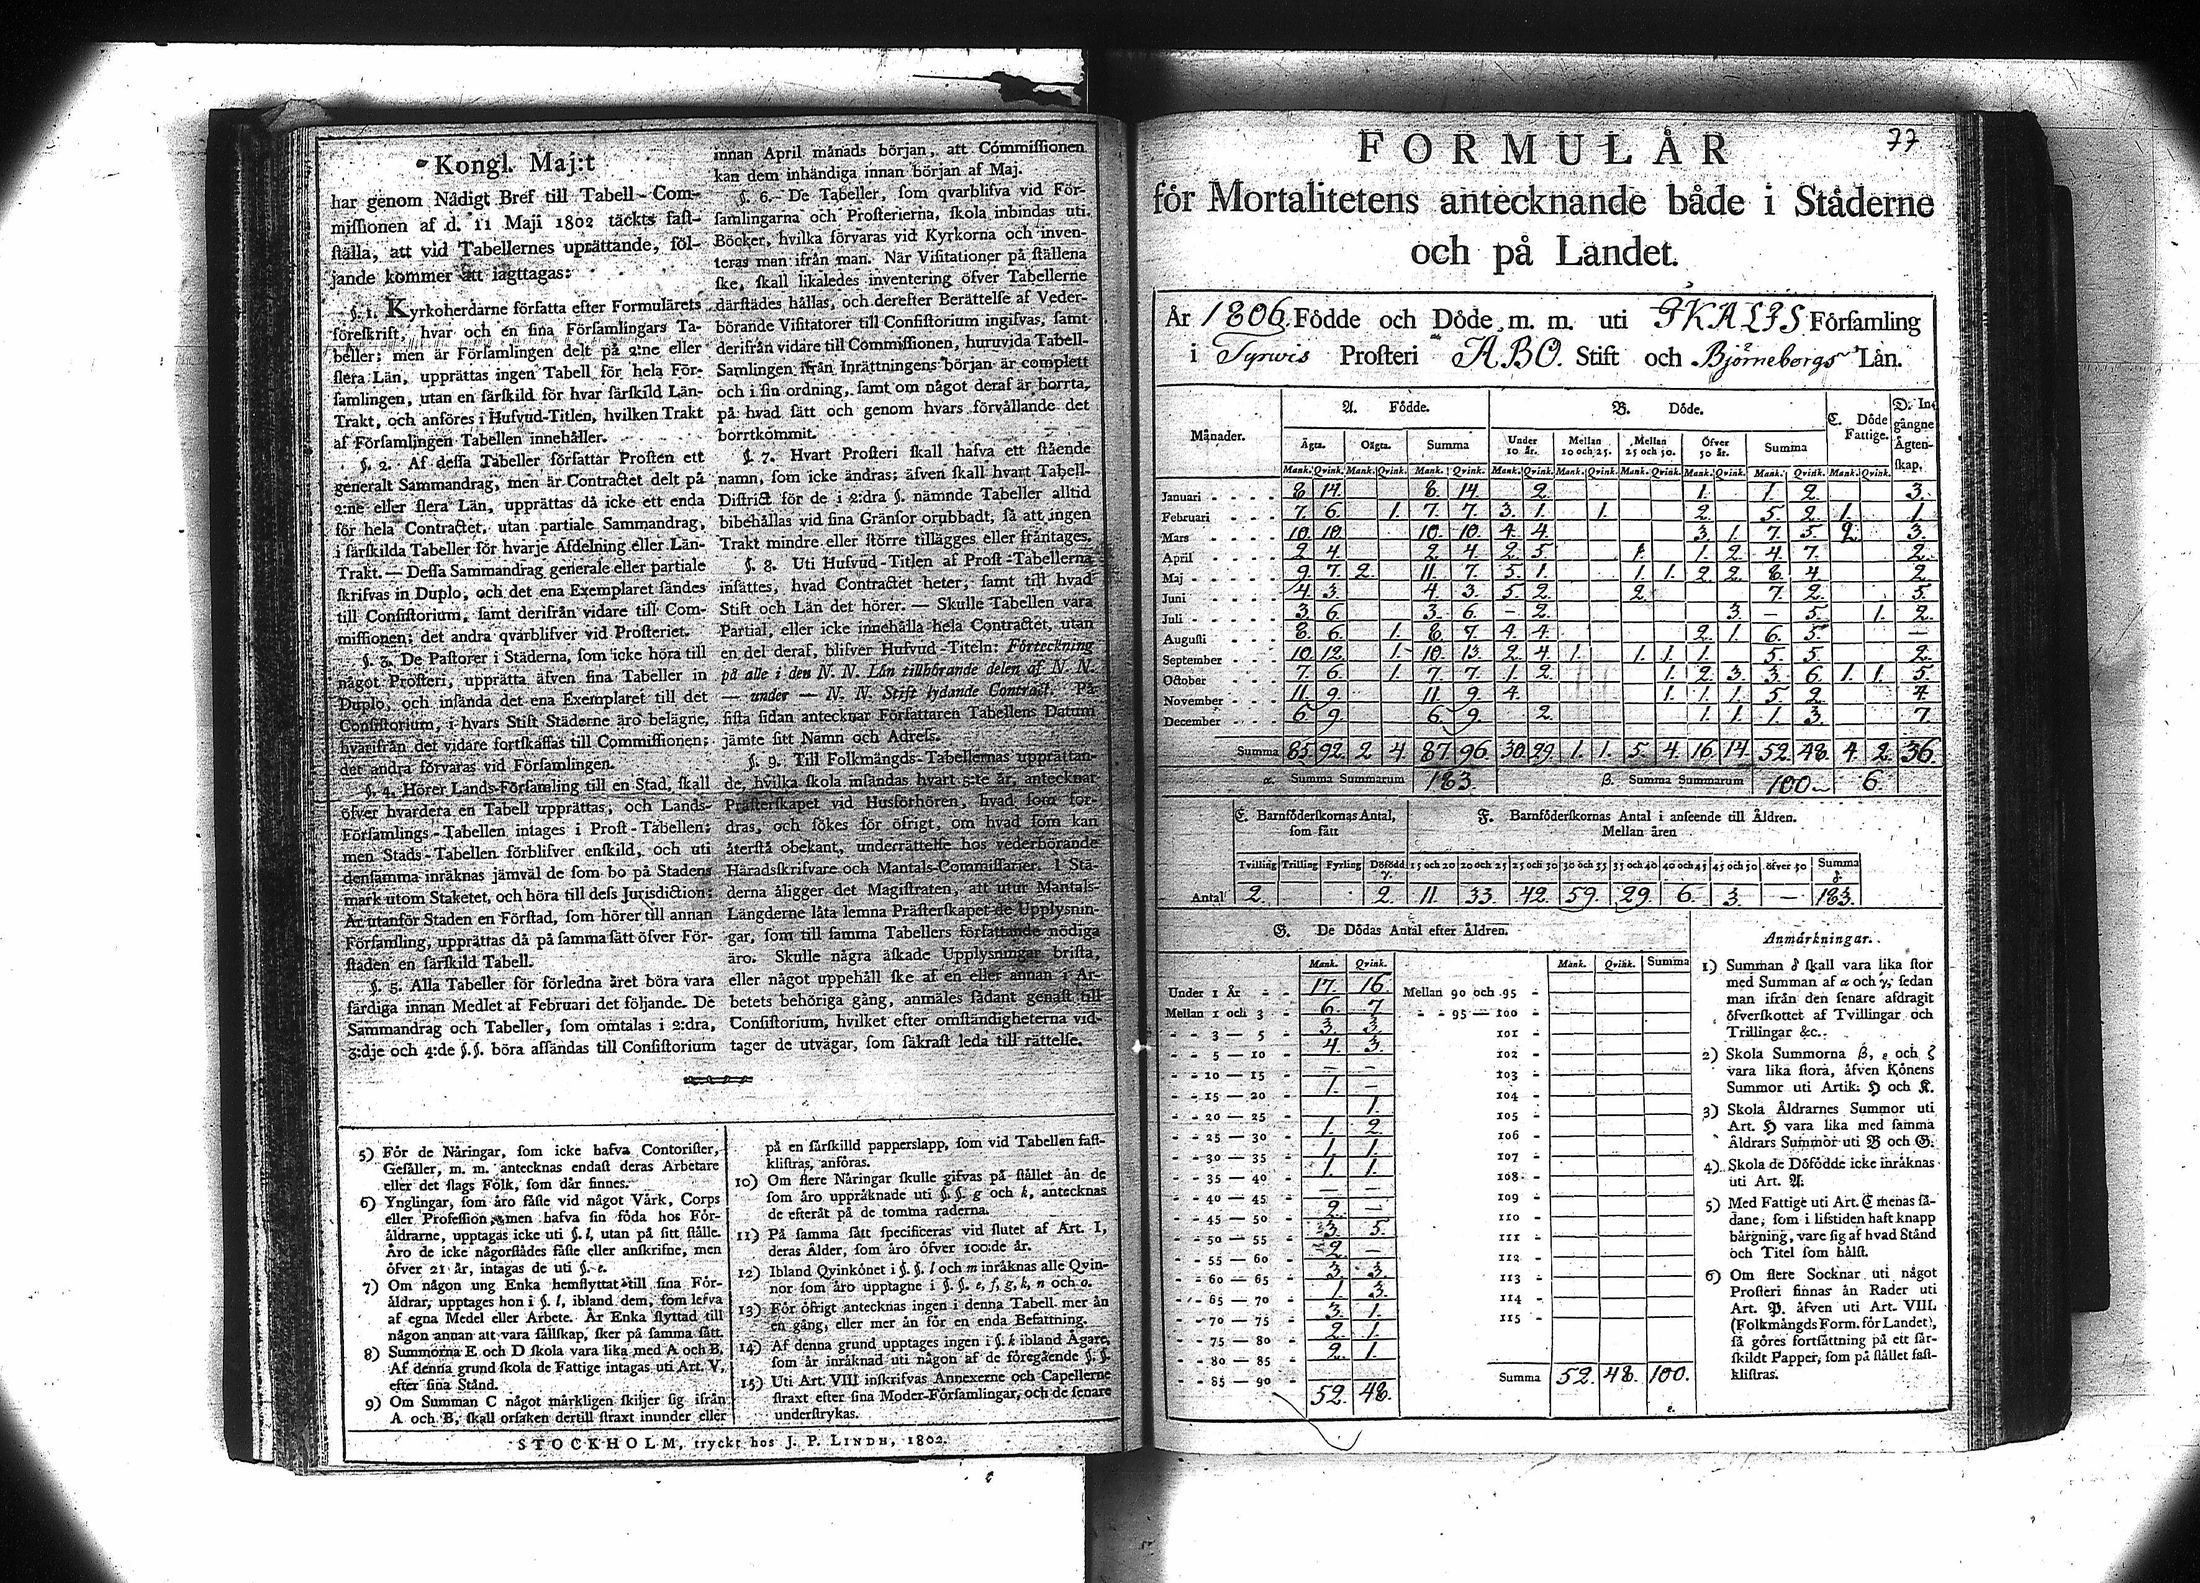 Kongl. Maj:t
har genom Nådigt Bref till Tabell-Com-
miſſionen af d. 11 Maji 1802 täckts faſt-
ſtälla, att vid Tabellernes upråttande, föl-
jande kommer att iagttagas:
§. 1. Kyrkoherdarne författa efter Formulårets
föreſkrift, hvar och en ſina Förſamlingars Ta-
beller; men är Förſamlingen delt på 2:ne eller
flera Län, upprättas ingen Tabell för hela För-
ſamlingen, utan en ſärſkild för hvar ſärſkild Län-
Trakt, och anföres i Hufvud-Titlen, hvilken Trakt
af Förſamlingen Tabellen innehåller.
§. 2. Af deſſa Tabeller författar Proſten ett
generalt Sammandrag, men är Contractet delt på
2:ne eller flera Län, upprättas då icke ett enda
för hela Contractet, utan partiale Sammandrag,
i ſärſkilda Tabeller för hvarje Afdelning eller Län-
Trakt. — Deſſa Sammandrag generale eller partiale
ſkrifvas in Duplo, och det ena Exemplaret ſändes
till Conſiſtorium, ſamt derifrån vidare till Com-
miſſionen; det andra qvarblifver vid Proſteriet.
§. 3. De Paſtorer i Städerna, ſom icke höra till
något Proſteri, upprätta äfven ſina Tabeller in
Duplo, och inſända det ena Exemplaret till det
Conſiſtorium, i hvars Stift Städerne äro belägne,
hvarifrån det vidare fortſkaffas till Commiſſionen;
det andra förvaras vid Förſamlingen.
§. 4. Hörer Lands-Förſamling till en Stad, ſkall
öfver hvardera en Tabell upprättas, och Lands-
Förſamlings-Tabellen intages i Proſt-Tabellen;
men Stads-Tabellen förblifver enſkild, och uti
denſamma inräknas jämväl de ſom bo på Stadens
mark utom Staketet, och höra till deſs Jurisdiction;
Är utanför Staden en Förſtad, ſom hörer till annan
Förſamling, upprättas då på ſamma ſätt öfver För-
ſtaden en ſärſkild Tabell.
§. 5. Alla Tabeller för förledna året böra vara
färdiga innan Medlet af Februari det följande. De
Sammandrag och Tabeller, ſom omtalas i 2:dra,
3:dje och 4:de §.§. böra afſändas till Conſiſtorium
innan April månads början, att Commiſſionen
kan dem inhändiga innan början af Maj.
§. 6. De Tabeller, ſom qvarblifva vid För-
ſamlingarna och Proſterierna, ſkola inbindas uti
Böcker, hvilka förvaras vid Kyrkorna och inven-
teras man ifrån man. När Viſitationer på ſtällena
ſke, ſkall likaledes inventering öfver Tabellerne
därſtädes hållas, och derefter Berättelſe af Veder-
börande Viſitatorer till Conſiſtorium ingifvas, ſamt
derifrån vidare till Commiſſionen, huruvida Tabell-
Samlingen ifrån Inrättningens början är complett
och i ſin ordning, ſamt om något deraf är borrta,
på hvad ſätt och genom hvars förvållande det
borrtkommit.
§. 7. Hvart Proſteri ſkall hafva ett ſtående
namn, ſom icke ändras; äfven ſkall hvart Tabell-
Diſtrict för de i 2:dra §. nämnde Tabeller alltid
bibehållas vid ſina Gränſor orubbadt, ſå att ingen
Trakt mindre eller ſtörre tillägges eller fråntages.
§. 8. Uti Hufvud-Titlen af Proſt-Tabellerna
inſättes, hvad Contractet heter, ſamt till hvad
Stift och Län det hörer. — Skulle Tabellen vara
Partial, eller icke innehålla hela Contractet, utan
en del deraf, blifver Hufvud-Titeln: Förteckning
på alle i den N. N. Län tillhörande delen af N. N.
— under — N. N. Stift lydande Contract. På
ſiſta ſidan antecknar Författaren Tabellens Datum
jämte ſitt Namn och Adreſs.
§. 9. Till Folkmängds-Tabellernas upprättan-
de, hvilka ſkola inſändas hvart 5:te år, antecknar
Präſterſkapet vid Husförhören, hvad ſom for-
dras, och ſökes för öfrigt, om hvad ſom kan
återſtå obekant, underrättelſe hos vederbörande
Häradsſkrifvare och Mantals-Commiſſarier. I Stä-
derna åligger det Magiſtraten, att utur Mantals-
Längderne låta lemna Präſterſkapet de Upplysnin-
gar, ſom till ſamma Tabellers författande nödiga
äro. Skulle några äſkade Upplysningar briſta,
eller något uppehåll ſke af en eller annan i Ar-
betets behöriga gång, anmäles ſådant genaſt till
Conſiſtorium, hvilket efter omſtändigheterna vid-
tager de utvägar, ſom ſäkraſt leda till rättelſe.
5) För de Näringar, ſom icke hafva Contoriſter,
Geſäller, m. m. antecknas endaſt deras Arbetare
eller det ſlags Folk, ſom där finnes.
6) Ynglingar, ſom äro fäſte vid något Värk, Corps
eller Profeſſion, men hafva ſin föda hos För-
äldrarne, upptagas icke uti §. l, utan på ſitt ſtälle.
Äro de icke någorſtädes fäſte eller anſkrifne, men
öfver 21 år, intagas de uti §. e.
7) Om någon ung Enka hemflyttat till ſina För-
äldrar, upptages hon i §. l, ibland dem, ſom lefva
af egna Medel eller Arbete. Är Enka flyttad till
någon annan att vara ſällſkap, ſker på ſamma ſätt.
8) Summorna E och D ſkola vara lika med A och B.
Af denna grund ſkola de Fattige intagas uti Art. V,
efter ſina Stånd.
9) Om Summan C något märkligen ſkiljer ſig ifrån
A och B, ſkall orſaken dertill ſtraxt inunder eller
på en ſärſkilld papperslapp, ſom vid Tabellen faſt-
kliſtras, anföras.
10) Om flere Näringar ſkulle gifvas på ſtället än de
ſom äro uppräknade uti §. §. g och k, antecknas
de efteråt på de tomma raderna.
11) På ſamma ſätt ſpecificeras vid ſlutet af Art. I,
deras Ålder, ſom äro öfver 100:de år.
12) Ibland Qvinkönet i §. §. l och m inräknas alle Qvin-
nor ſom äro upptagne i §. §. e, f, g, k, n och o.
13) För öfrigt antecknas ingen i denna Tabell mer än
en gång, eller mer än för en enda Befattning.
14) Af denna grund upptages ingen i §. k ibland Ägare,
ſom är inräknad uti någon af de föregående §. §.
15) Uti Art. VIII inſkrifvas Annexerne och Capellerne
ſtraxt efter ſina Moder-Förſamlingar, och de ſenare
underſtrykas.
STOCKHOLM, tryckt hos J. P. LINDH, 1802.
77
FORMULÅR
för Mortalitetens antecknande både i Ståderne
och på Landet.
År 1806. Födde och Döde m. m. uti IKALIS Förſamling
i Tyrwis Proſteri ABO. Stift och Björneborgs Län.
Månader. A. Födde. B. Döde. C. Döde Fattige. D. Ingångne Ägtenſkap.
Ägta. Oägta. Summa Under 10 år. Mellan 10 och 25. Mellan 25 och 50. Öfver 50 år. Summa
Mank. Qvink. Mank. Qvink. Mank. Qvink. Mank. Qvink. Mank. Qvink. Mank. Qvink. Mank. Qvink. Mank. Qvink. Mank. Qvink.
Januari 8 14. 8. 14. 2. 1. 1. 2. 3.
Februari 7. 6. 1. 7. 7. 3. 1. 1. 2. 5 2. 1. 1.
Mars 10. 10. 10. 10. 4. 4. 3. 1. 7. 5. 2. 3.
April 2 4. 2. 4. 2. 5. 1. 1. 2. 4 7. 2.
Maj 9. 7. 2. 11. 7. 5. 1. 1. 1. 2. 2. 8. 4. 2.
Juni 4. 3. 4. 3. 5. 2. 2. 7. 2. 5.
Juli 3. 6. 3. 6. – 2. 3. – 5. 1. 2.
Auguſti 8. 6. 1. 8. 7. 4. 4. 2. 1. 6. 5. —
September 10. 12. 1. 10. 13. 2. 4. 1. 1. 1. 1. 5. 5. 2.
October 7. 6. 1. 7. 7. 1. 2. 1. 2. 3. 3. 6. 1. 1. 5.
November 11. 9. 11. 9. 4. 1. 1. 1. 5. 2. 4.
December 6. 9. 6. 9. 2. 1. 1. 1. 3. 7.
Summa 85. 92. 2. 4. 87. 96. 30. 29. 1. 1. 5. 4. 16. 14. 52. 48. 4. 2. 36.
α. Summa Summarum 183. β. Summa Summarum 100 6.
E. Barnföderſkornas Antal, ſom fått F. Barnföderſkornas Antal i anſeende till Åldren.
Mellan åren
Tvilling Trilling Fyrling Döfödd γ. 15 och 20 20 och 25 25 och 30 30 och 35 35 och 40 40 och 45 45 och 50 öfver 50 Summa δ.
Antal 2. 2. 11. 33. 42. 59. 29. 6. 3. — 183.
G. De Dödas Antal efter Åldren.
Mank. Qvink.
Under 1 År 17. 16.
Mellan 1 och 3 6. 7
3 — 5 3. 3.
5 — 10 4. 3.
10 — 15 – –
15 — 20 1. –
20 — 25 1.
25 — 30 1. 2.
30 — 35 1. 1.
35 — 40 1. 1.
40 — 45 – –
45 — 50 2. –
50 — 55 3. 5.
55 — 60 2. –
60 — 65 3. 3.
65 — 70 1. 3.
70 — 75 3. 1.
75 — 80 2. 1.
80 — 85 2. 1.
85 — 90
52. 48.
Mank. Qvink. Summa
Mellan 90 och 95
95 — 100
101
102
103
104
105
106
107
108
109
110
111
112
113
114
115
Summa 52. 48. 100.
ε.
Anmärkningar.
1) Summan δ ſkall vara lika ſtor
med Summan af α och γ, ſedan
man ifrån den ſenare afdragit
öfverſkottet af Tvillingar och
Trillingar &c.
2) Skola Summorna β, ε och ζ
vara lika ſtora, äfven Könens
Summor uti Artik. H och K.
3) Skola Åldrarnes Summor uti
Art. H vara lika med ſamma
Åldrars Summor uti B och G.
4) Skola de Döfödde icke inräknas
uti Art. A.
5) Med Fattige uti Art. C menas ſå-
dane, ſom i lifstiden haft knapp
bärgning, vare ſig af hvad Stånd
och Titel ſom hälſt.
6) Om flere Socknar uti något
Proſteri finnas än Rader uti
Art. P. äfven uti Art. VIII.
(Folkmängds Form. för Landet),
ſå göres fortſättning på ett ſär-
ſkildt Papper, ſom på ſtället faſt-
kliſtras.